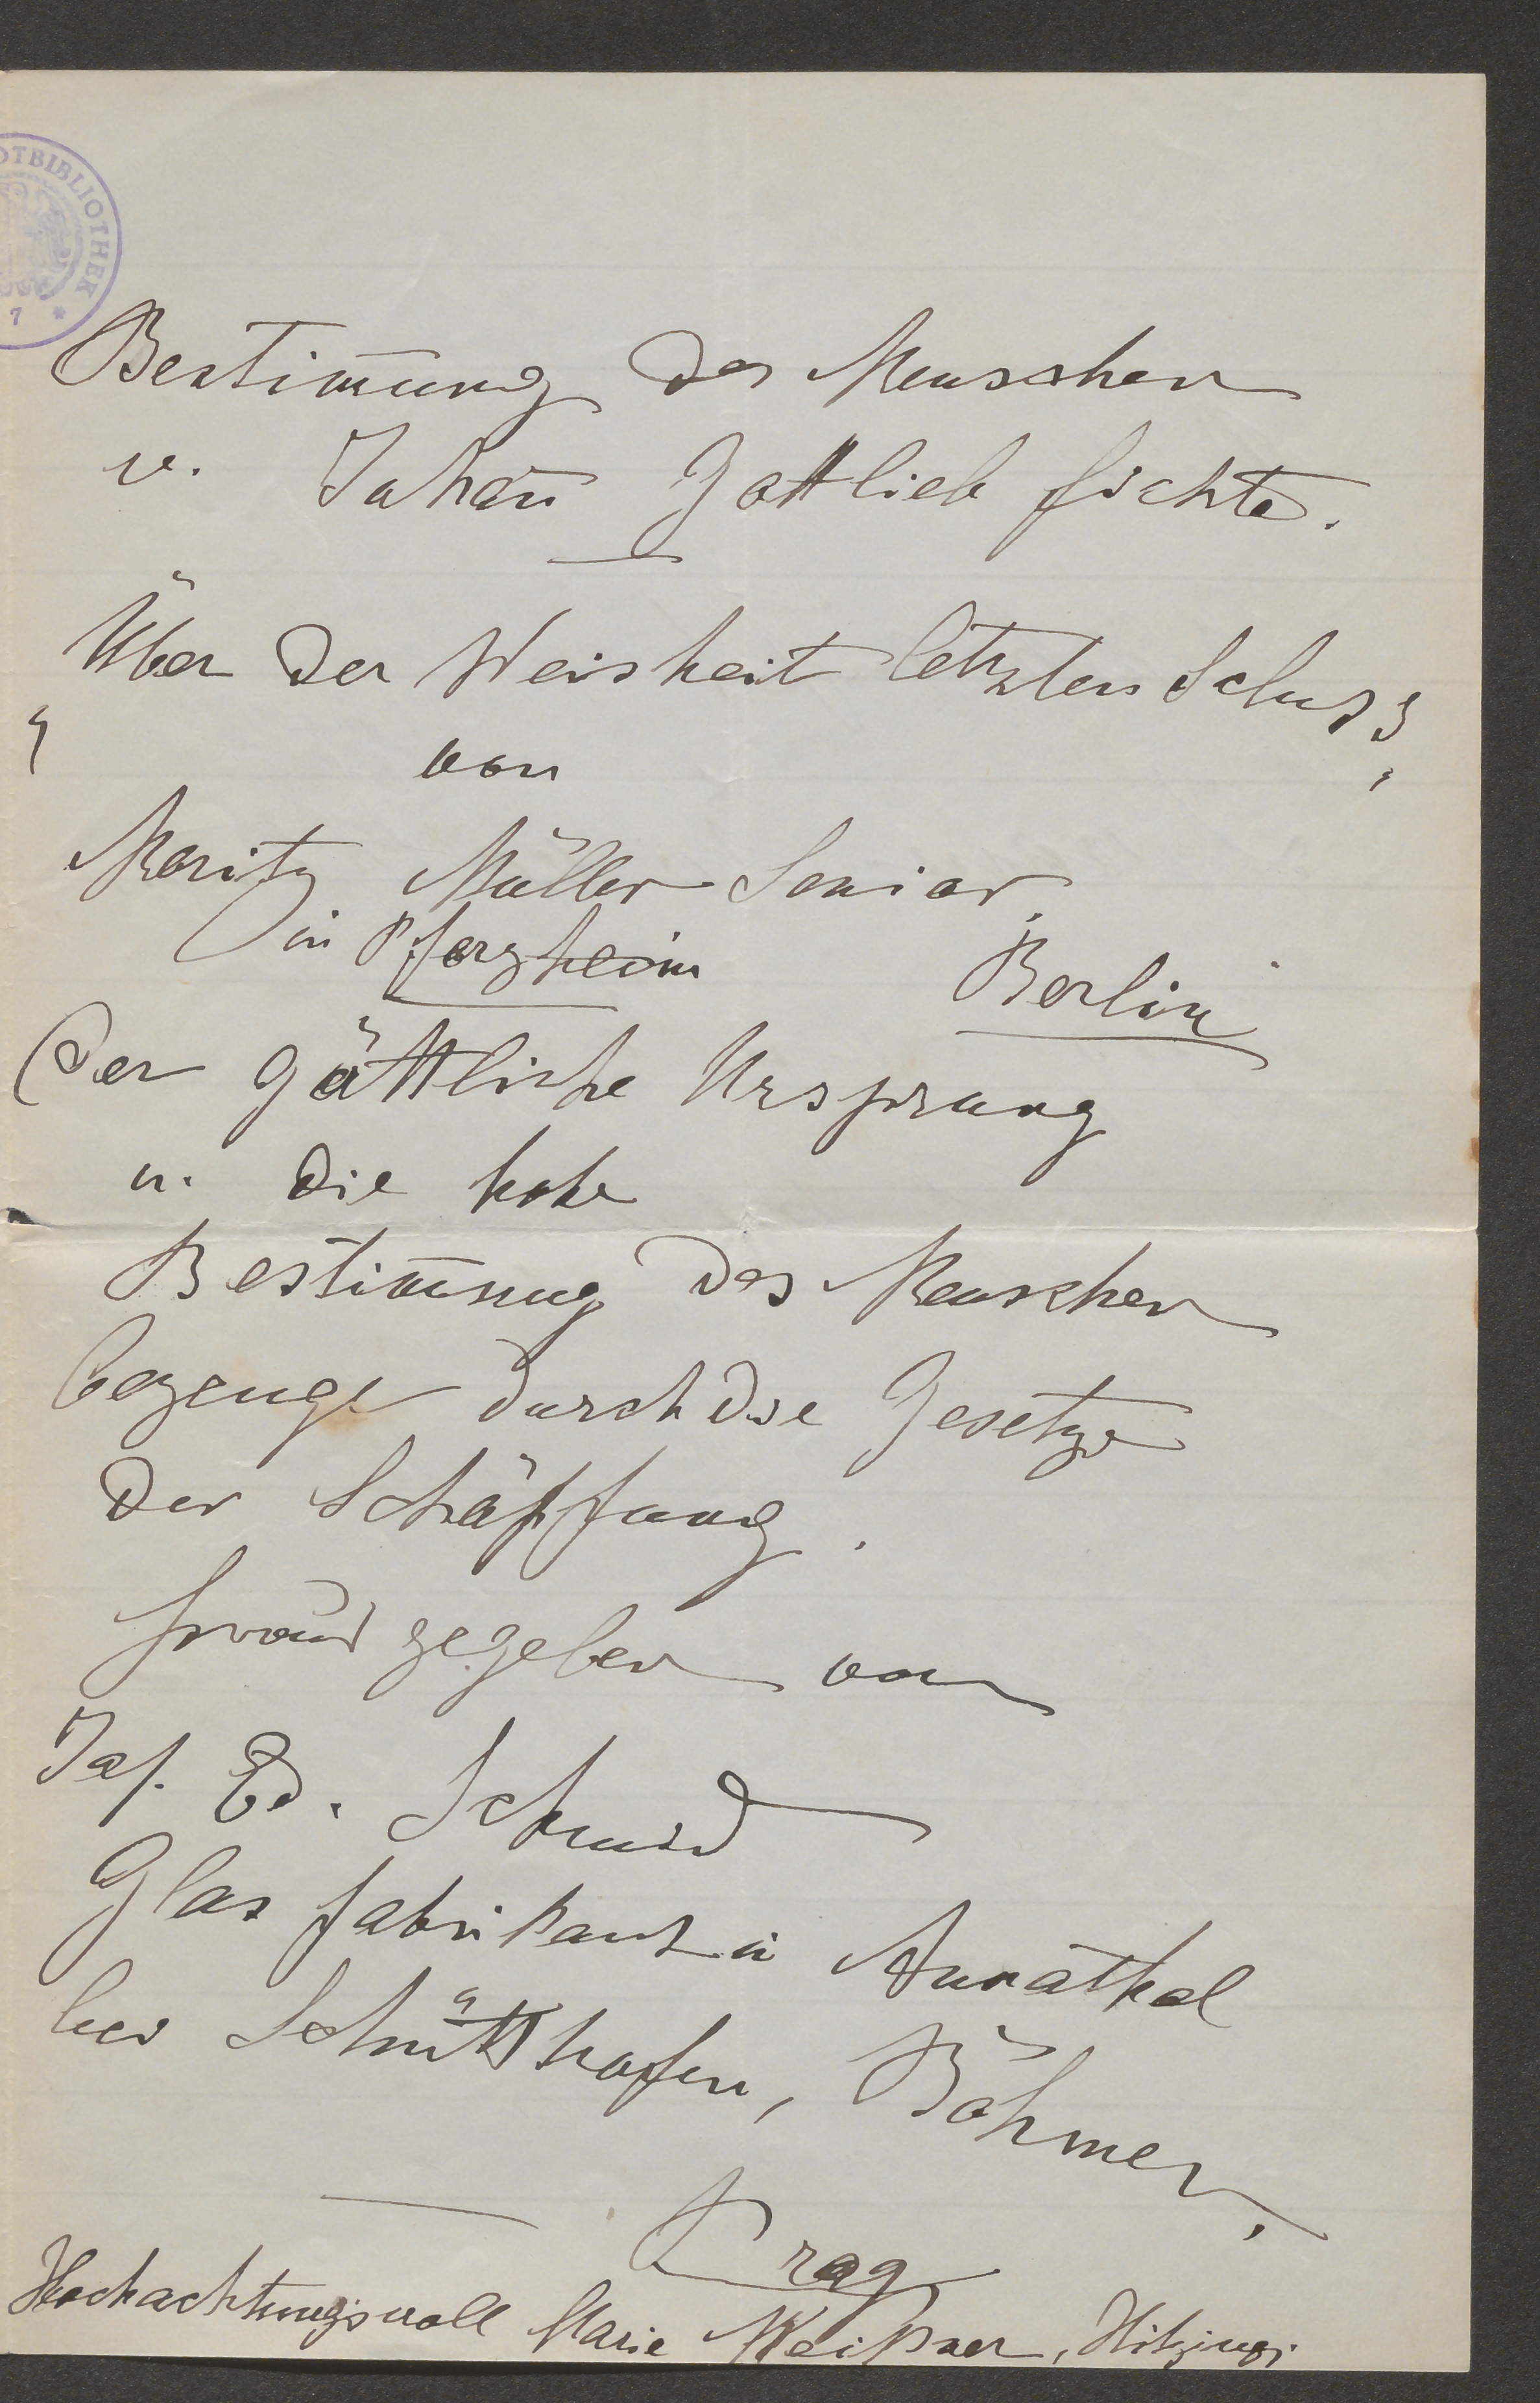 OTBIBLIOTHEK
7 *
Bestim̄ung des Menschen
v. Johan̄ Gottlieb Fichte.
Über der Weisheit letzten Schuss
von
Moritz Müller Senior,
in Pforzheim
Berlin
Der göttliche Ursprung
u. die hohe
Bestim̄ung des Menschen
bezeugt durch die Gesetze
der Schöpfung.
gegeben von
Jos. Ed. Schmid
Glasfabrikant in An̄athal
bei Schütthofen, Böhmen.
Prag
Hochachtungsvoll Marie Weissner, Hitzing